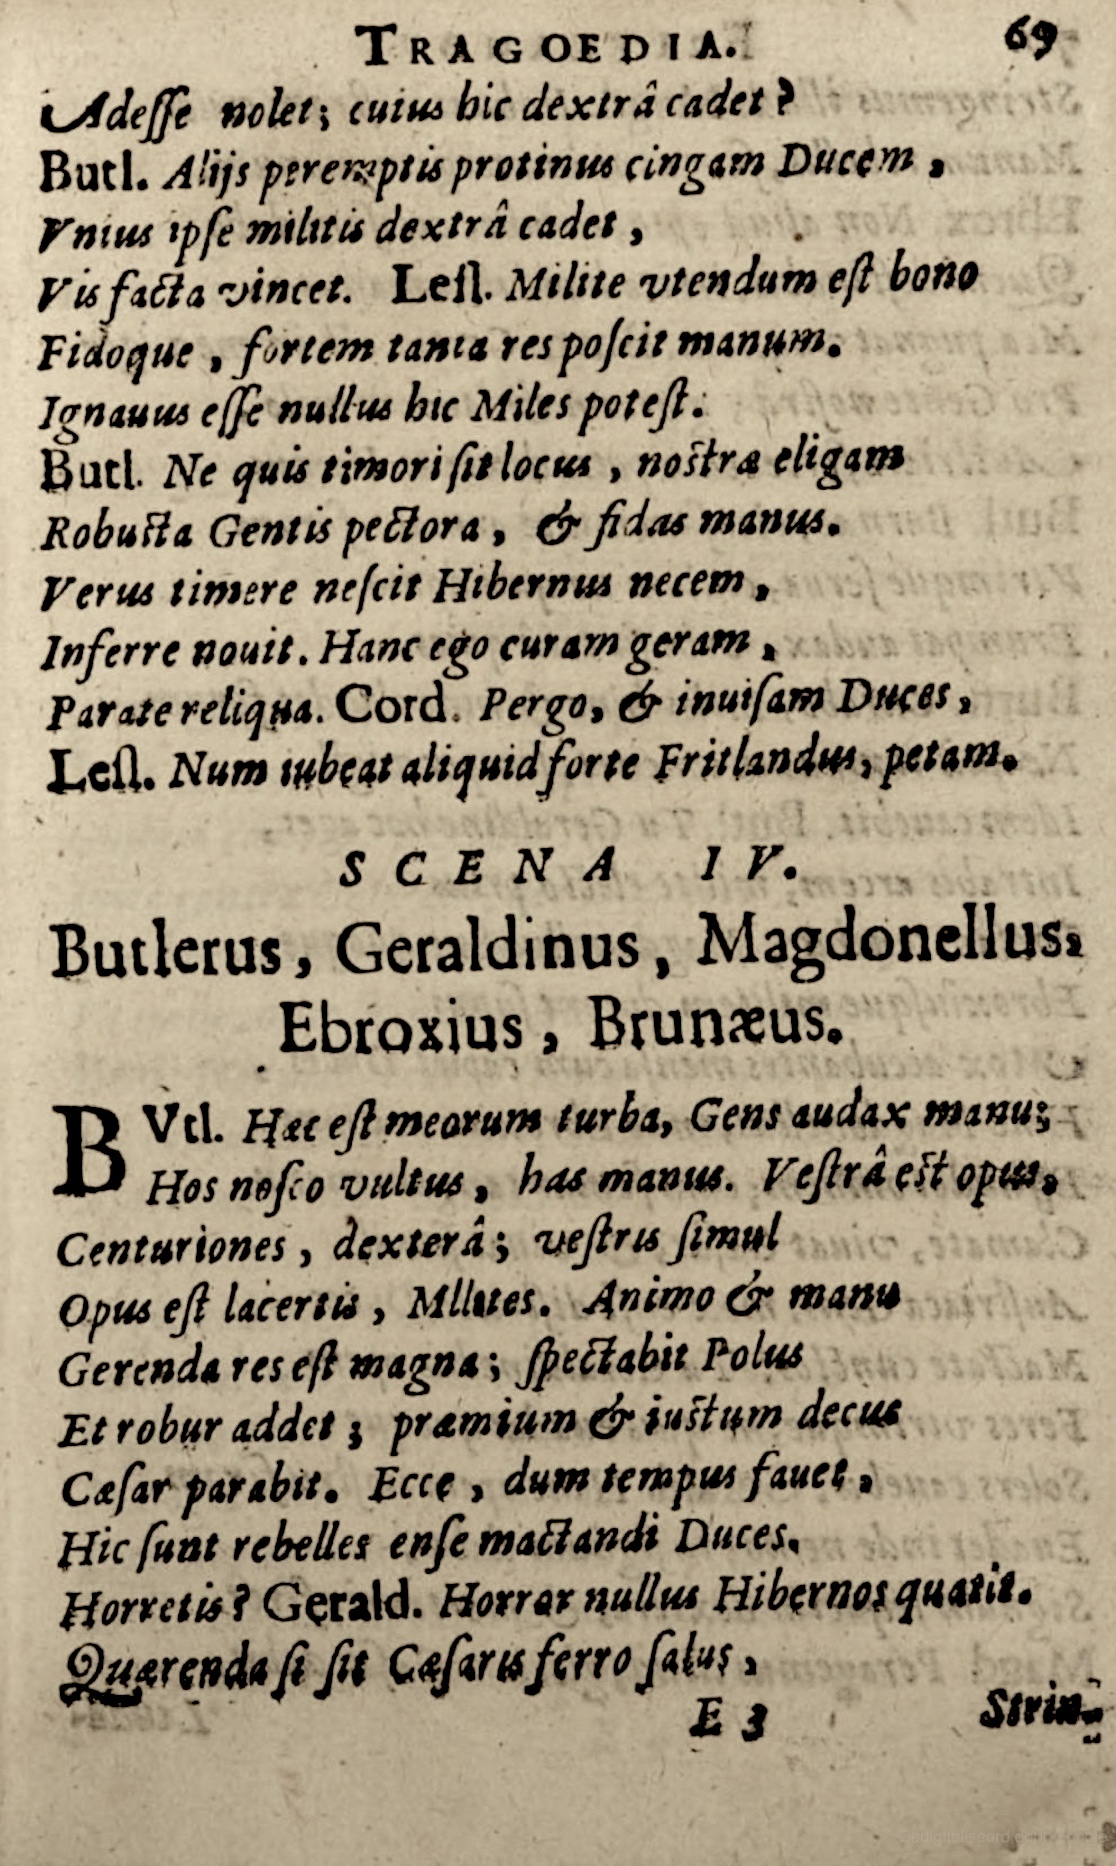 TRAGOEDIA. 69
Adeſſe nolet; cuius hic dextrâ cadet?
Butl. Alijs peremptis protinus cingam Ducem,
Vnius ipſe militis dextrâ cadet,
Vis facta vincet. Leſl. Milite vtendum eſt bono
Fidoque, fortem tanta res poſcit manum.
Ignauus eſſe nullus hic Miles poteſt.
Butl. Ne quis timori ſit locus, noſtræ eligam
Robuſta Gentis pectora, & fidas manus.
Verus timere neſcit Hibernus necem,
Inferre nouit. Hanc ego curam geram,
Parate reliqua. Cord. Pergo, & inuiſam Duces,
Leſl. Num iubeat aliquid forte Fritlandus, petam.
SCENA IV.
Butlerus, Geraldinus, Magdonellus,
Ebroxius, Brunæus.
BVtl. Hæc eſt meorum turba, Gens audax manu;
Hos noſco vultus, has manus. Veſtrâ eſt opus,
Centuriones, dexterâ; veſtris ſimul
Opus eſt lacertis, Mllites. Animo & manu
Gerenda res eſt magna; ſpectabit Polus
Et robur addet; præmium & iuſtum decus
Cæſar parabit. Ecce, dum tempus fauet,
Hic ſunt rebelles enſe mactandi Duces.
Horretis? Gerald. Horror nullus Hibernos quatit.
Quærenda ſi ſit Cæſaris ferro ſalus,
E 3 Strin-